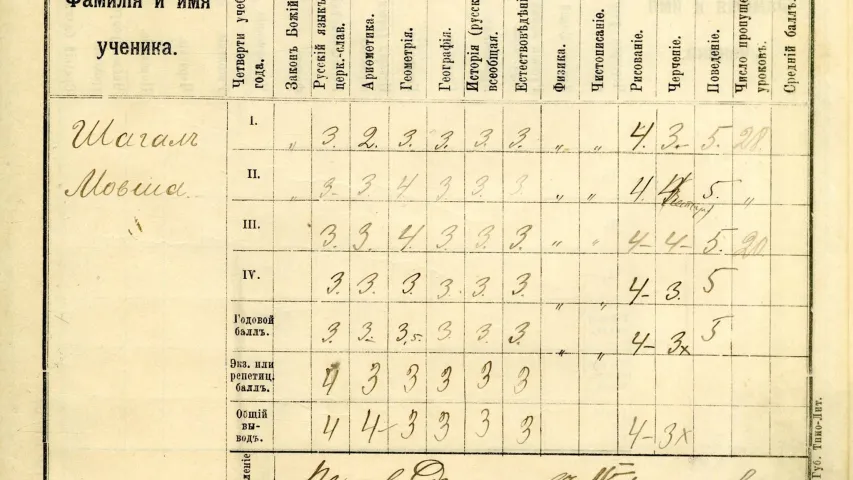 Фамилія и имя
ученика.
Четверти учеб
года.
Законъ Божій
Русскій языкъ
церк.-слав.
Ариѳметика.
Геометрія.
Географія.
Исторія (русск
всеобщая.
Естествовѣдѣні
Физика.
Чистописаніе.
Рисованіе.
Черченіе.
Поведеніе.
Число пропуще
уроковъ.
Средній баллъ.
Шагалъ
Мовша
I. „ 3. 2. 3. 3. 3. 3. „ „ 4. 3. 5. 28.
II. „ 3 3 4 3 3. 3 „ „ 4. 4 5. „
III. 3. 3. 4 3 3 3. „ „ 4 4 5. 20
IV. 3. 3. 3. 3. 3. 3. „ „ 4 3. 5
Годовой
баллъ. 3. 3. 3,5. 3. 3. 3. „ „ 4 3х 5
Экз. или
репетиц.
баллъ. 4 3 3 3 3 3
Общій
вы-
водъ. 4 4 3 3 3 3 4 3х
Губ. Типо-Лит.